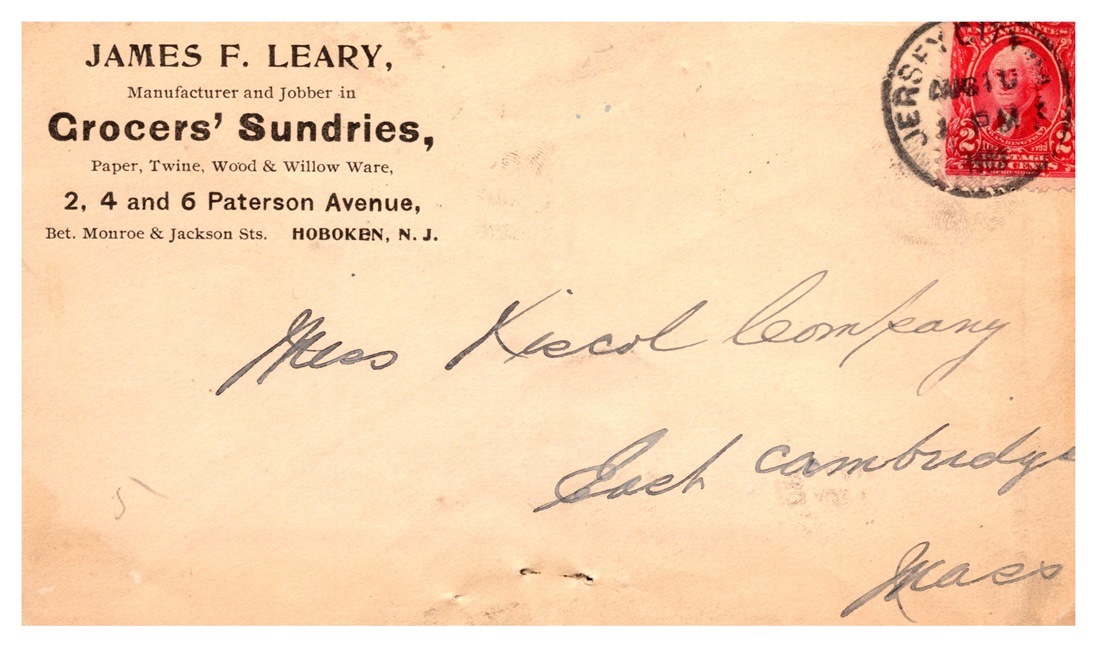 JAMES F. LEARY,
Manufacturer and Jobber in
Grocers' Sundries,
Paper, Twine, Wood & Willow Ware,
2, 4 and 6 Paterson Avenue,
Bet. Monroe & Jackson Sts. HOBOKEN, N. J.
JERSEY CITY
AUG 10
2 2
WASHINGTON
POSTAGE
TWO CENTS
Mess Kiscol Company
East Cambridge
Mass